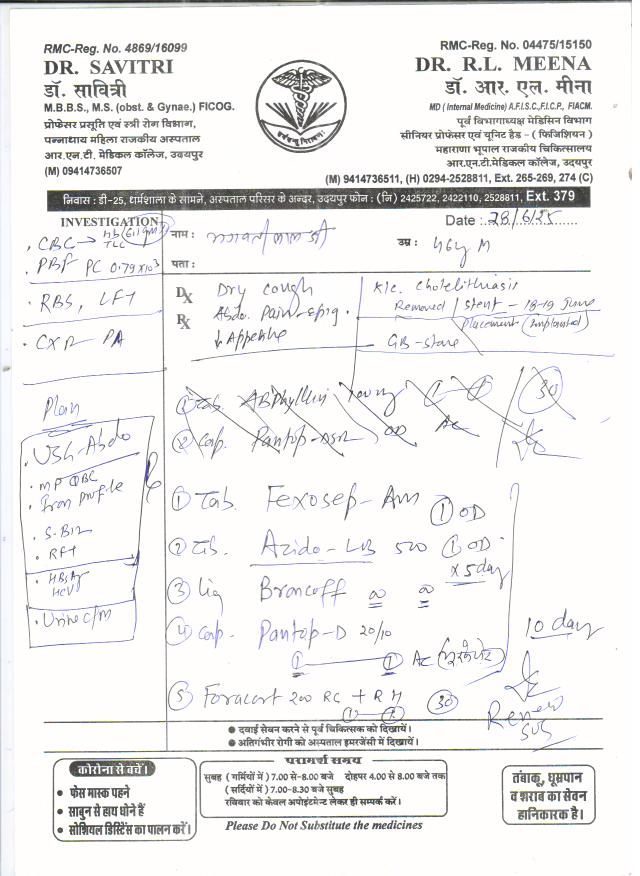 RMC-Reg. No. 4869/16099
DR. SAVITRI
डॉ. सावित्री
M.B.B.S., M.S. (obst. & Gynae.) FICOG.
प्रोफेसर प्रसूति एवं स्त्री रोग विभाग,
पन्नाधाय महिला राजकीय अस्पताल
आर.एन.टी. मेडिकल कॉलेज, उदयपुर
(M) 09414736507
RMC-Reg. No. 04475/15150
DR. R.L. MEENA
डॉ. आर. एल. मीना
MD ( Internal Medicine) A.F.I.S.C.,F.I.C.P., FIACM.
पूर्व विभागाध्यक्ष मेडिसिन विभाग
सीनियर प्रोफेसर एवं यूनिट हैड - ( फिजिशियन )
महाराणा भूपाल राजकीय चिकित्सालय
आर.एन.टी.मेडिकल कॉलेज, उदयपुर
(M) 9414736511, (H) 0294-2528811, Ext. 265-269, 274 (C)
निवास : डी-25, धर्मशाला के सामने, अस्पताल परिसर के अन्दर, उदयपुर फोन : (नि) 2425722, 2422110, 2528811, Ext. 379
INVESTIGATION
CBC → Hb 6.1 gm%
TLC
PBF PC 0.79 x 10³
RBS, LFT
CXR - PA
Plan
USG-Abdo
MP QBC
Iron profile
S-B12
RFT
HBsAg
HCV
Urine c/m
Date : 28/6/25
नाम :
उम्र : 46y M
पता :
Dx Dry cough
Rx Abdo. Pain - epig.
↓ Appetite
K/c. Cholelithiasis
Removed / Stent - 18-19 June
Placement (Implanted)
GB-stone
① Tab. ABPhyllin 30
② Cap. Pantop-DSR OD AC
① Tab. Fexosep-Am ① OD
② Tab. Azido-LB 500 ① OD
x 5 day
③ Liq Broncoff
④ Cap. Pantop-D 20/10
① ① AC
10 day
⑤ Foracort 200 RC + RH 30
Renew
SOS
● दवाई सेवन करने से पूर्व चिकित्सक को दिखायें।
● अतिगंभीर रोगी को अस्पताल इमरजेंसी में दिखायें।
कोरोना से बचें।
• फेस मास्क पहने
• साबुन से हाथ धोने हैं
• सोशियल डिस्टेंस का पालन करें।
परामर्श समय
सुबह ( गर्मियों में ) 7.00 से-8.00 बजे दोहपर 4.00 से 8.00 बजे तक
( सर्दियों में ) 7.00-8.30 बजे सुबह
रविवार को केवल अपोइंटमेन्ट लेकर ही सम्पर्क करें।
Please Do Not Substitute the medicines
तंबाकू, धूम्रपान
व शराब का सेवन
हानिकारक है।